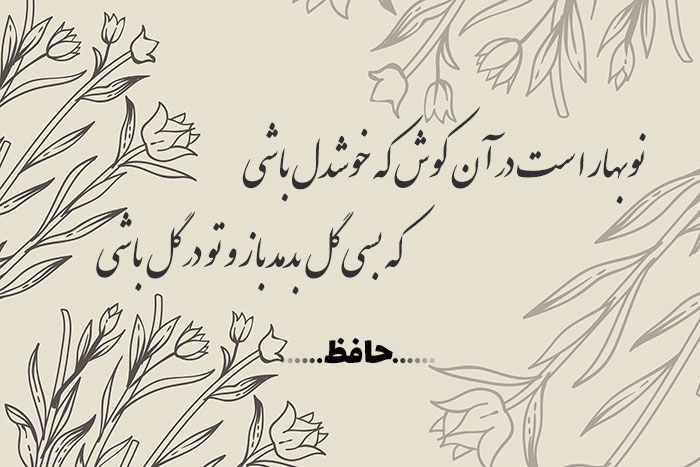 نوبهار است در آن کوش که خوشدل باشی
که بسی گل بدمد باز و تو در گل باشی
......حافظ......